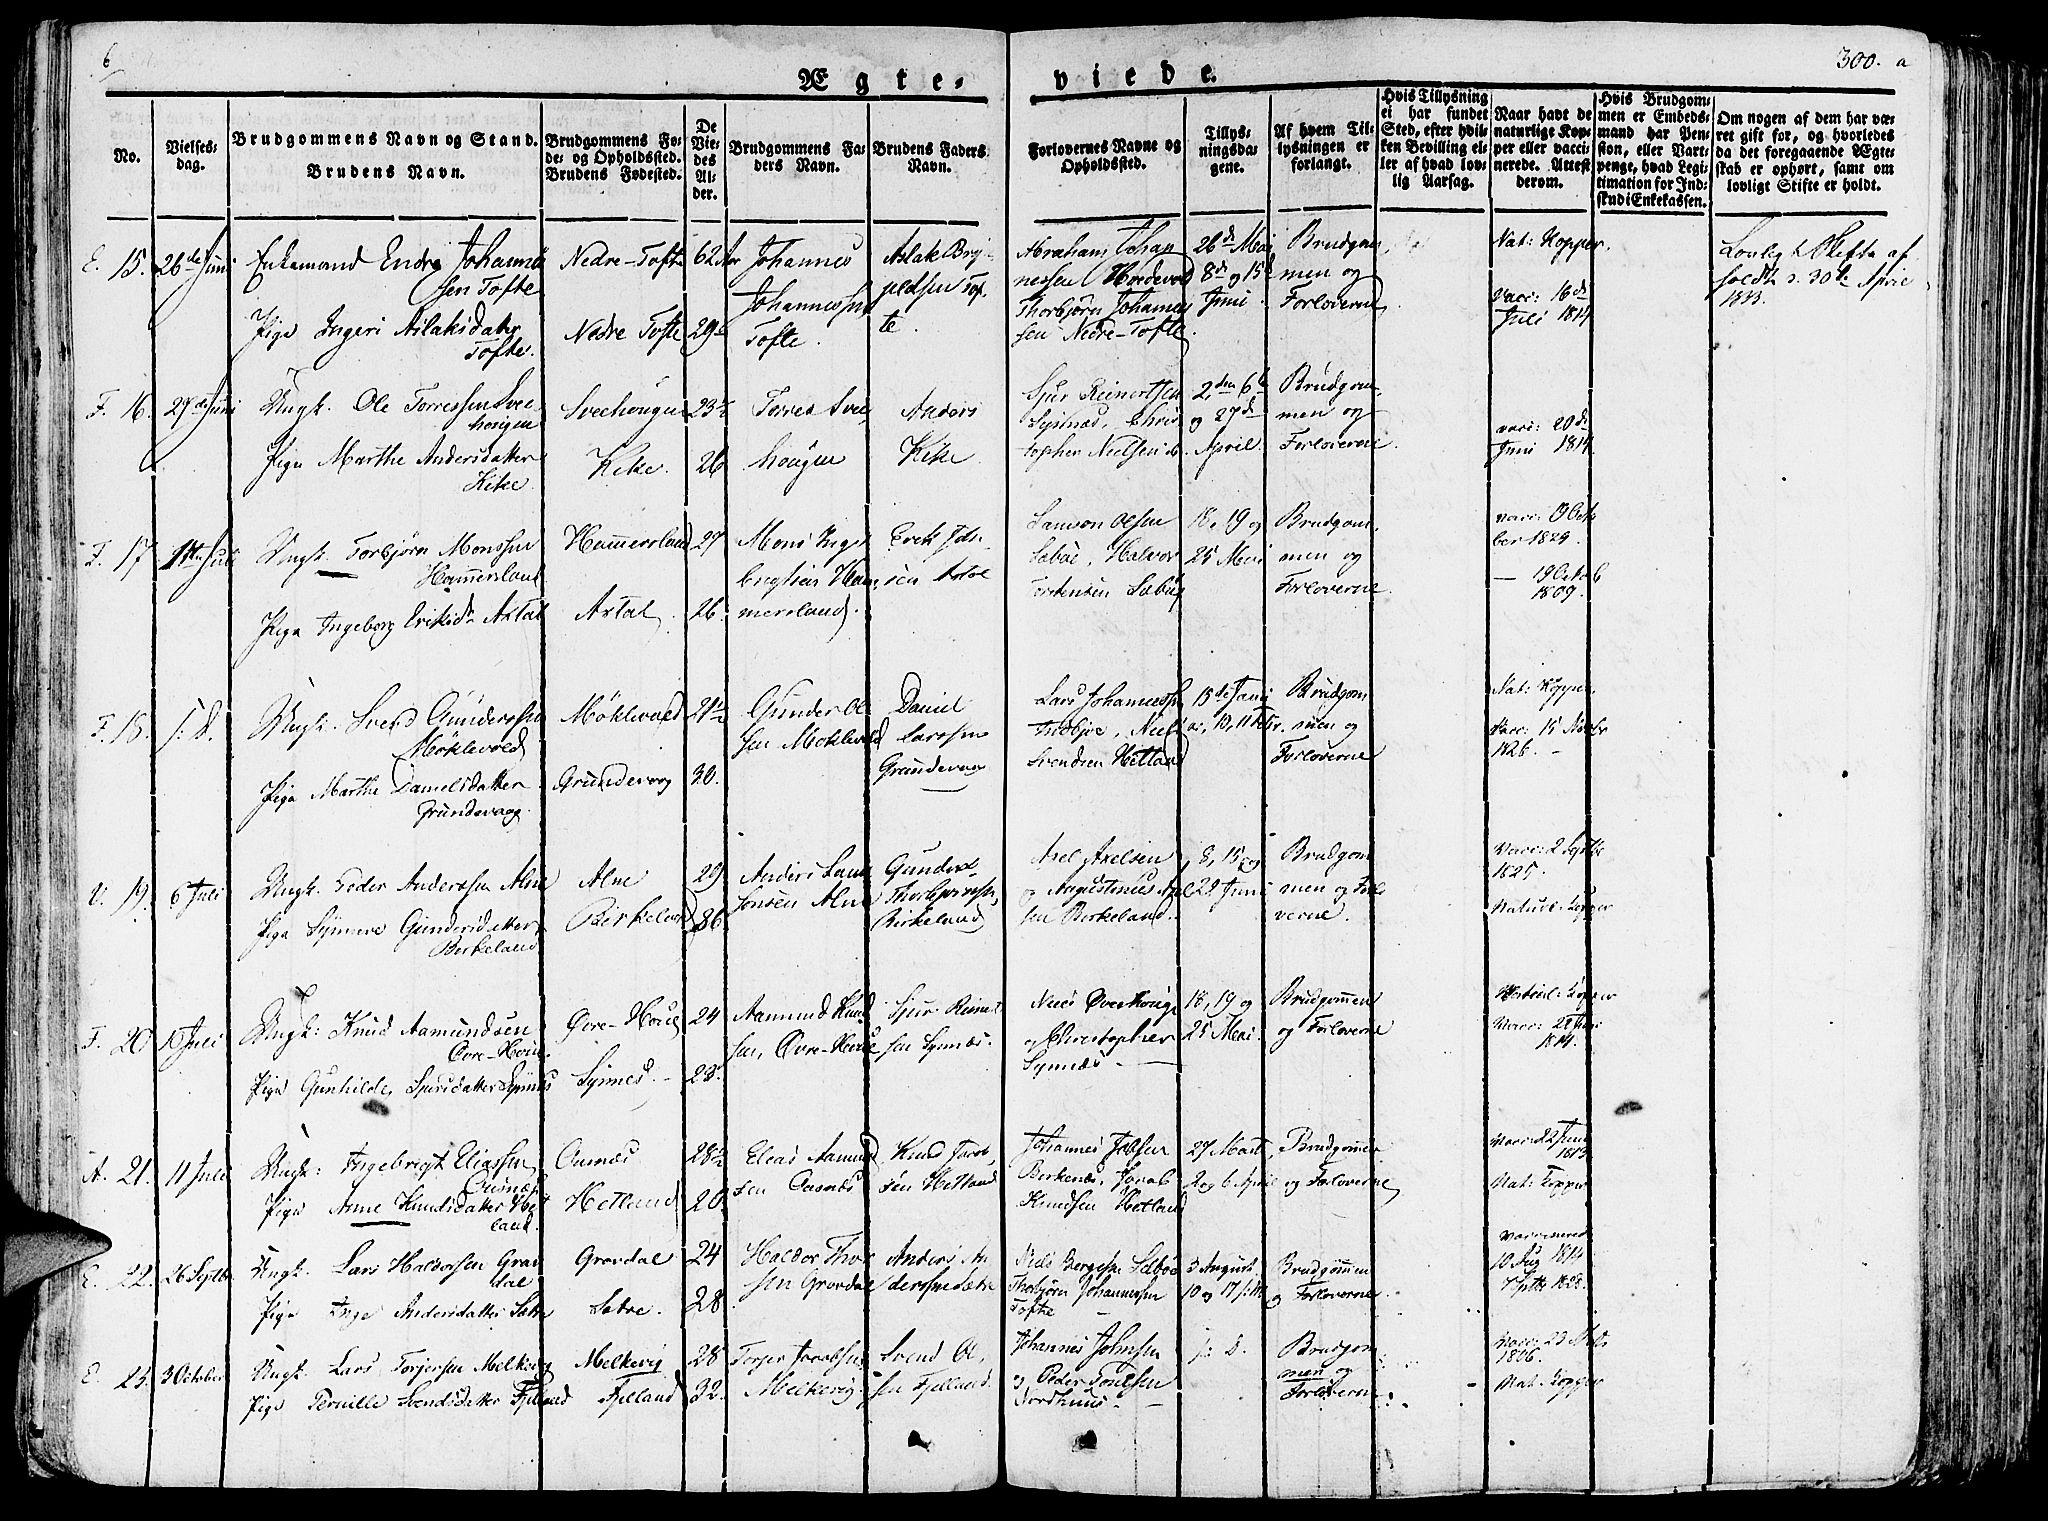 6
300. a
Ægte-
viede.
No.
Vielses-
dag.
Brudgommens Navn og Stand.
Brudens Navn.
Brudgommens Fø-
de- og Opholdssted.
Brudens Fødested.
De
Vie-
des
Al-
der.
Brudgommens Fa-
ders Navn.
Brudens Faders
Navn.
Forlovernes Navne og
Opholdssted.
Tillys-
ningsda-
gene.
Af hvem Til-
lysningen er
forlangt.
Hvis Tillysning
ei har fundet
Sted, efter hvil-
ken Bevilling el-
ler af hvad lov-
lig Aarsag.
Naar havt de
naturlige Kop-
per eller vacci-
nerede. Attest
derom.
Hvis Brudgom-
men er Embeds-
mand har Pen-
sion, eller Vart-
penge, hvad Legi-
timation for Ind-
skud i Enkekassen.
Om nogen af dem har væ-
ret gift for, og hvorledes
da det foregaaende Ægte-
skab er ophørt, samt om
lovligt Skifte er holdt.
E. 15. 26de Juni
Enkemand Endre Johanne
sen Tofte
Pige Ingeri Aslaksdatter
Tofte.
Nedre-Tofte
Nedre Tofte
62 Aar
29
Johannes
Johannessen
Tofte.
Aslak
Tof-
te.
Abraham Johan
nessen
Thorbjørn Johannes
sen Nedre-Tofte
26de Mai
8de og 15de
Juni.
Brudgom
men og
Forloverne
Nat: Kopper.
Vacc: 16de
Juli 1814
Lovlig Skifte af
holdt d. 30te April
1833.
F. 16. 27de Juni
Ungk. Ole Torressen Svee
hougen
Pige Marthe Andersdatter
Kike
Sveehougen
Kike.
23½
26
Torres Svee
hougen
Anders
Kike
Sjur Reinertsen
Synnæs, Chris
topher Nielsen
2den 6te
og 27de
April
Brudgom
men og
Forloverne
vacc: 20de
Juni 1814
F. 17 1ste Juli
Ungk. Torbjørn Monssen
Hammersland
Pige Ingeborg Eriksd. Axtal
Hammersland
Axtal
27
26.
Mons Inge
brigtsen Ham
mersland.
Erik
Samson Olsen
Sæbøe, Halvor
Torstensen Sæbøe
18, 19 og
25 Mai
Brudgom
men og
Forloverne.
vacc: 9 Octo
ber 1829.
— 19 Octob
1809.
F. 18. s: D.
Ungk. Svend Gundersen
Møklevold
Pige Marthe Danielsdatter
Grundevaag
Møklevold
Grundevaag
21½
30.
Gunder Ol
sen Møklevold
Daniel
Larssen
Grundevaag
Lars Johannessen
Niels
Svendsen Hetland
Brudgom
men og
Forloverne
Nat: Kopper
Vacc: 15 Novbr
1826. -
V. 19. 6 Juli
Ungk. Peder Anderssen Alne
Pige Synneve Gundersdatter
Birkeland
Alne
Birkeland
29
36
Anders
sen Alne
Gunder
Thorbjørnsen
Birkeland
Axel Axelsen
og Augustinus Axel
sen Birkeland.
8, 15 og
22 Juni
Brudgom
men og Forlo
verne.
Vacc: 2 Septbr
1825.
Naturl. Kopper
F. 20 10 Juli
Ungk: Knud Aamundsen
Øvre-Hovie
Pige Gunhilde Sjursdatter Synnes
Øvre-Hovie
Synnes.
24
23.
Aamund Knud
sen, Øvre-Hovie
Sjur Reinert
sen Synnæs.
Niels Øvrehovige
og Christopher
Synnæs
18, 19 og
25 Mai.
Brudgommen
og Forloverne
Naturl. Kopper
Vacc: 22 Juni
1814.
A. 21. 11 Juli
Ungk: Ingebrigt Eliassen
Ousnæs
Pige Anne Knudsdatter Het
land.
Ousnæs
Hetland
28½
20
Elias Aamund
sen Ousnæs
Knud Jacob
sen Hetland
Johannes Jobsen
Birkenæs, Jacob
Knudsen Hetland
27 Marts,
2 og 6 April
Brudgommen
og Forloverne
Vacc: 22 Juni
1813
Nat: Kopper
E. 22. 26 Septbr
Ungk. Lars Haldorsen Grov
dal
Pige Inge Andersdatter Sætre
Grovdal
Sætre.
24
28
Haldor Thor
sen Grovdal
Anders An
derssen Sætre
Niels Børgesen Sæbøe
Thorbjørn Johannessen
Tofte
3 August
10 og 17
Brudgommen
og Forloverne
Vaccineret
10 Aug 1814
7 Septbr 1828.
E. 23. 3 October
Ungk. Lars Torjersen Melkevig
Pige Pernille Svendsdatter Fjelland
Melkevig
Fjelland
28
32.
Torjer Jacobsen
Melkevig
Svend Ol
sen Fjelland.
Johannes Johnsen
og Peder Toresen
Nordhuus
s: D.
Brudgom
men og
Forloverne
Vacc: 23
1806.
Nat: Kopper